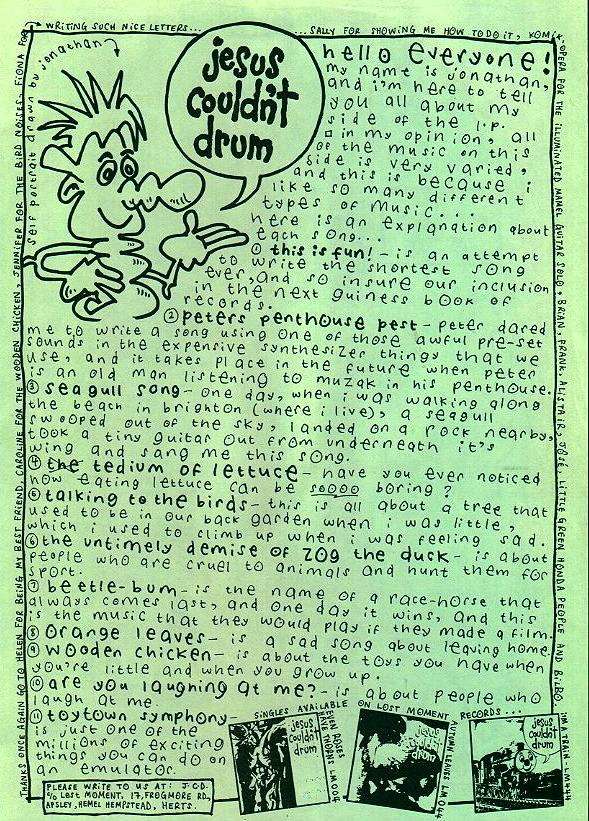 THANKS ONCE AGAIN GO TO HELEN FOR BEING MY BEST FRIEND, CAROLINE FOR THE WOODEN CHICKEN, JENNIFER FOR THE BIRD NOISES, FIONA FOR
WRITING SUCH NICE LETTERS...
...SALLY FOR SHOWING ME HOW TO DO IT, KOMIK-
OPERA FOR THE ILLUMINATED MAMEL GUITAR SOLO + BRIAN, FRANK, ALISTAIR, JOSÉ, LITTLE GREEN HONDA PEOPLE AND BILBO.
self portrait drawn by jonathan
jesus
couldn't
drum
hello everyone!
my name is jonathan,
and i'm here to tell
you all about my
side of the l.p.
in my opinion, all
of the music on this
side is very varied,
and this is because i
like so many different
types of music...
here is an explanation about
each song...
① this is fun! - is an attempt
to write the shortest song
ever, and so insure our inclusion
in the next guiness book of
records.
② peters penthouse pest - peter dared
me to write a song using one of those awful pre-set
sounds in the expensive synthesizer things that we
use, and it takes place in the future when peter
is an old man listening to muzak in his penthouse.
③ seagull song - one day, when i was walking along
the beach in brighton (where i live), a seagull
swooped out of the sky, landed on a rock nearby,
took a tiny guitar out from underneath it's
wing and sang me this song.
④ the tedium of lettuce - have you ever noticed
how eating lettuce can be soooo boring?
⑤ talking to the birds - this is all about a tree that
used to be in our back garden when i was little,
which i used to climb up when i was feeling sad.
⑥ the untimely demise of zog the duck - is about
people who are cruel to animals and hunt them for
sport.
⑦ beetle-bum - is the name of a race-horse that
always comes last, and one day it wins, and this
is the music that they would play if they made a film.
⑧ orange leaves - is a sad song about leaving home.
⑨ wooden chicken - is about the toys you have when
you're little and when you grow up.
⑩ are you laughing at me? - is about people who
laugh at me.
⑪ toytown symphony -
is just one of the
millions of exciting
things you can do on
an emulator.
SINGLES AVAILABLE ON LOST MOMENT RECORDS...
jesus
couldn't
drum
EVEN ROSES
HAVE THORNS LM 004
jesus
couldn't
drum
AUTUMN LEAVES LM 044
jesus
couldn't
drum
I'M A TRAIN. LM 444
PLEASE WRITE TO US AT: J.C.D.
c/o LOST MOMENT, 17, FROGMORE RD.,
APSLEY, HEMEL HEMPSTEAD, HERTS.